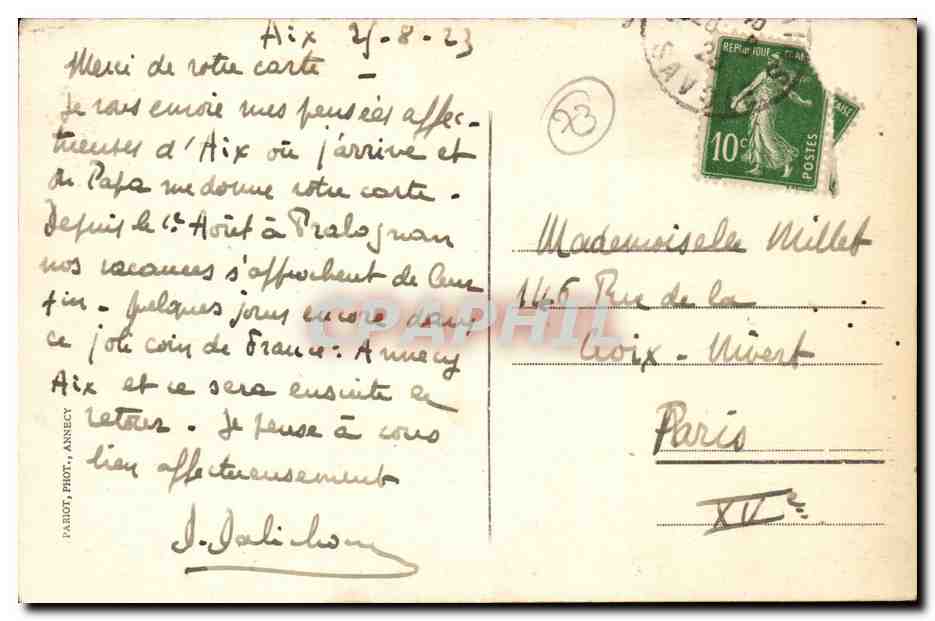 Aix 25-8-23
Merci de votre carte -
Je vous envoie mes pensées affec-
tueuses d'Aix où j'arrive et
où Papa me donne votre carte.
Depuis le 1er Août à Pralognan
nos vacances s'approchent de leur
fin - quelques jours encore dans
ce joli coin de France: Annecy
Aix et ce sera ensuite le
retour. Je pense à vous
bien affectueusement
23
REPUBLIQUE FRANC
10c
POSTES
Mademoiselle Millet
146 Rue de la
Croix-Nivert
Paris
XVe
PARIOT, PHOT., ANNECY
CPAPHIL